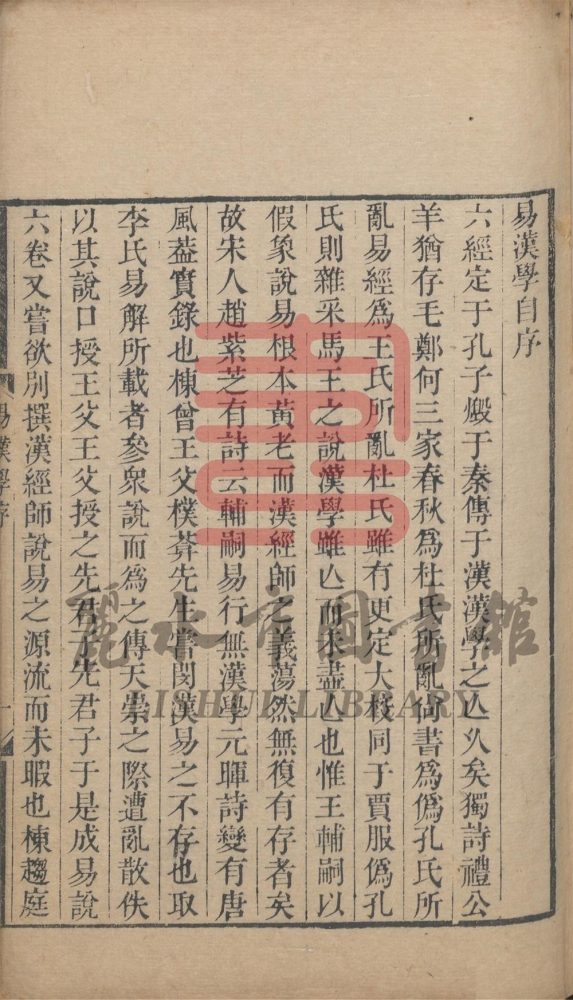 易漢學自序
六經定于孔子燬于秦傳于漢漢學之亾久矣獨詩禮公
羊猶存毛鄭何三家春秋爲杜氏所亂尙書爲僞孔氏所
亂易經爲王氏所亂杜氏雖有更定大校同于賈服僞孔
氏則雜采馬王之說漢學雖亾而未盡亾也惟王輔嗣以
假象說易根本黃老而漢經師之義蕩然無復有存者矣
故宋人趙紫芝有詩云輔嗣易行無漢學元暉詩變有唐
風葢實錄也棟曾王父樸菴先生嘗閔漢易之不存也取
李氏易解所載者參衆說而爲之傳天崇之際遭亂散佚
以其說口授王父王父授之先君子先君子于是成易說
六卷又嘗欲別撰漢經師說易之源流而未暇也棟趨庭
易漢學序
一
麗水市圖書館
LISHUI LIBRARY